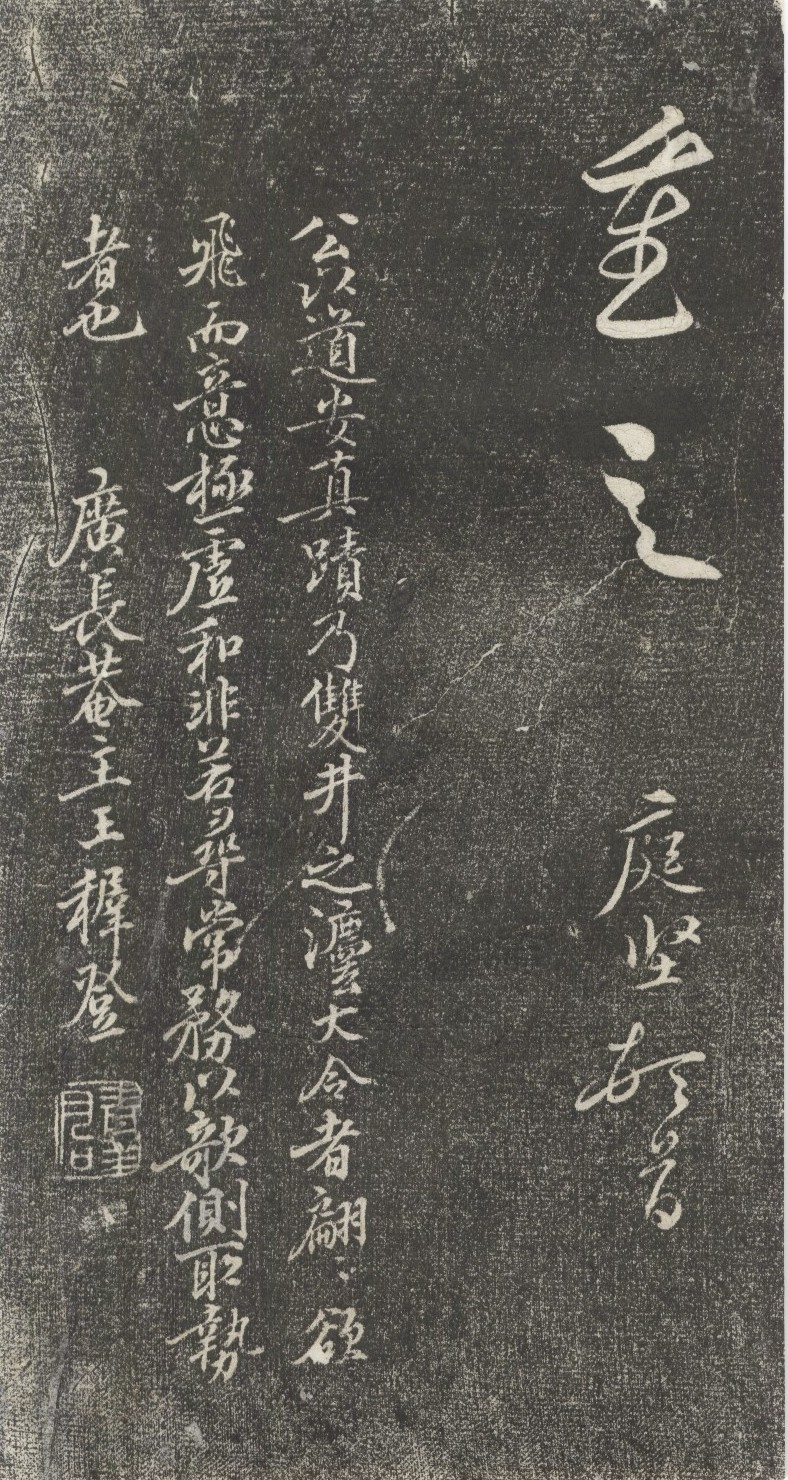 重之 庭坚頓首
公以道安真蹟乃雙井之灋大令者翩〻欲
飛而意思極虛和非若尋常務以欹側取執
者也 廣長菴主王穉登